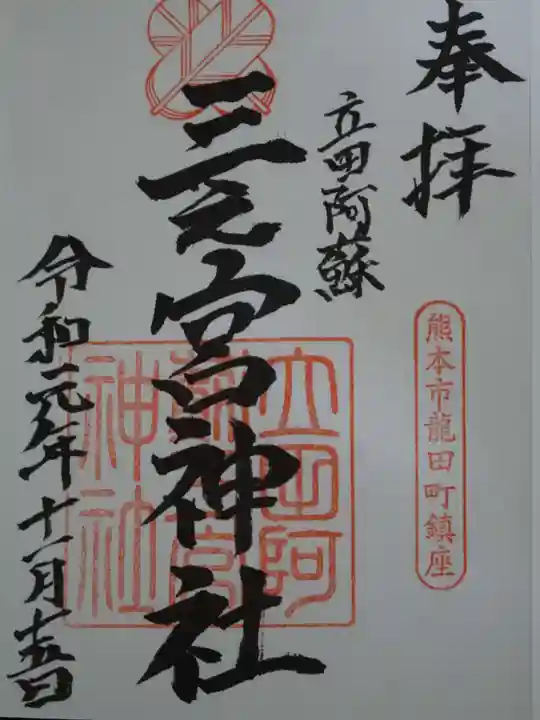 奉拝
熊本市龍田町鎮座
立田阿蘇
三之宮神社
立田阿
神社
令和元年十一月十五日